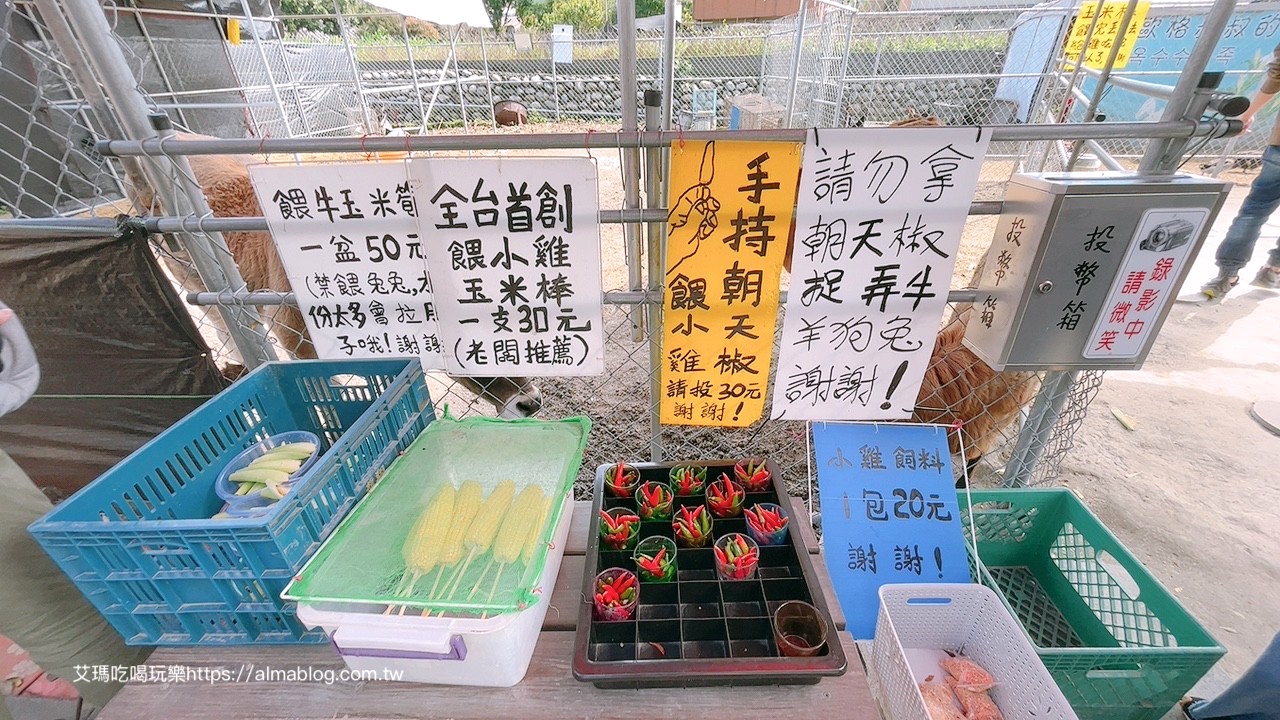 餵牛玉米筍
一盆50元
(禁餵兔兔,
份太多會拉肚
子哦!謝謝
全台首創
餵小雞
玉米棒
一支30元
(老闆推薦)
手持朝天椒
餵小雞
請投30元
謝謝!
請勿拿
朝天椒
捉弄牛
羊狗兔
謝謝!
投幣箱
投幣箱
錄影中
請微笑
小雞飼料
1包20元
謝謝!
艾瑪吃喝玩樂https://almablog.tw